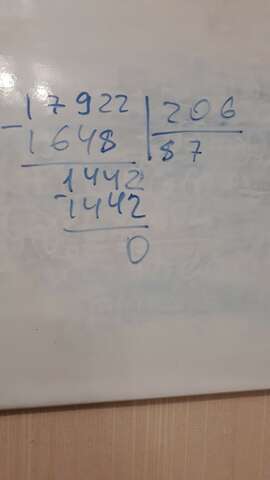 17922 | 206
- 1648 | 87
1442
- 1442
0